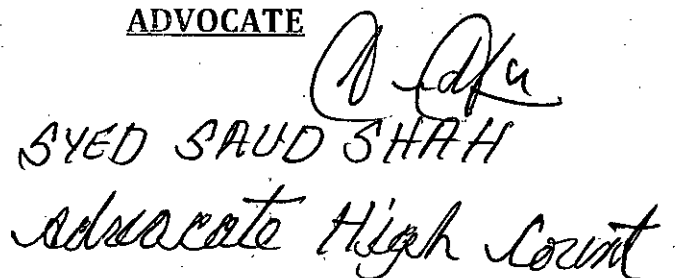 ADVOCATE
SYED SAUD SHAH
Advocate High Court